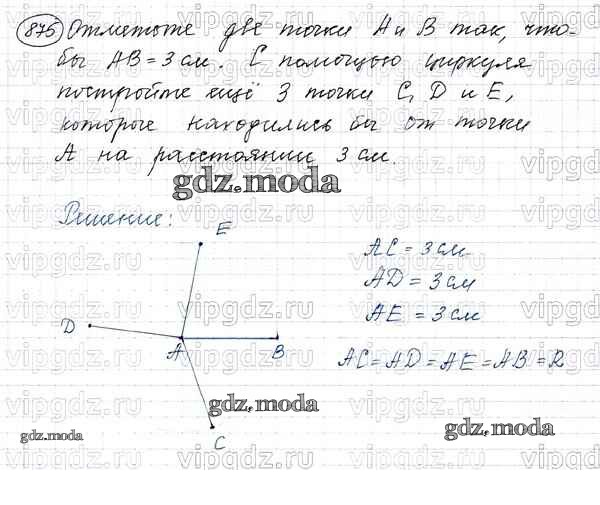 875 Отметьте две точки A и B так, что-
бы AB = 3 см. С помощью циркуля
постройте ещё 3 точки C, D и E,
которые находились бы от точки
A на расстоянии 3 см.
gdz.moda
Решение:
E
AC = 3 см
AD = 3 см
AE = 3 см
D
A
B
AC = AD = AE = AB = R
gdz.moda
gdz.moda
gdz.moda
C
vipgdz.ru